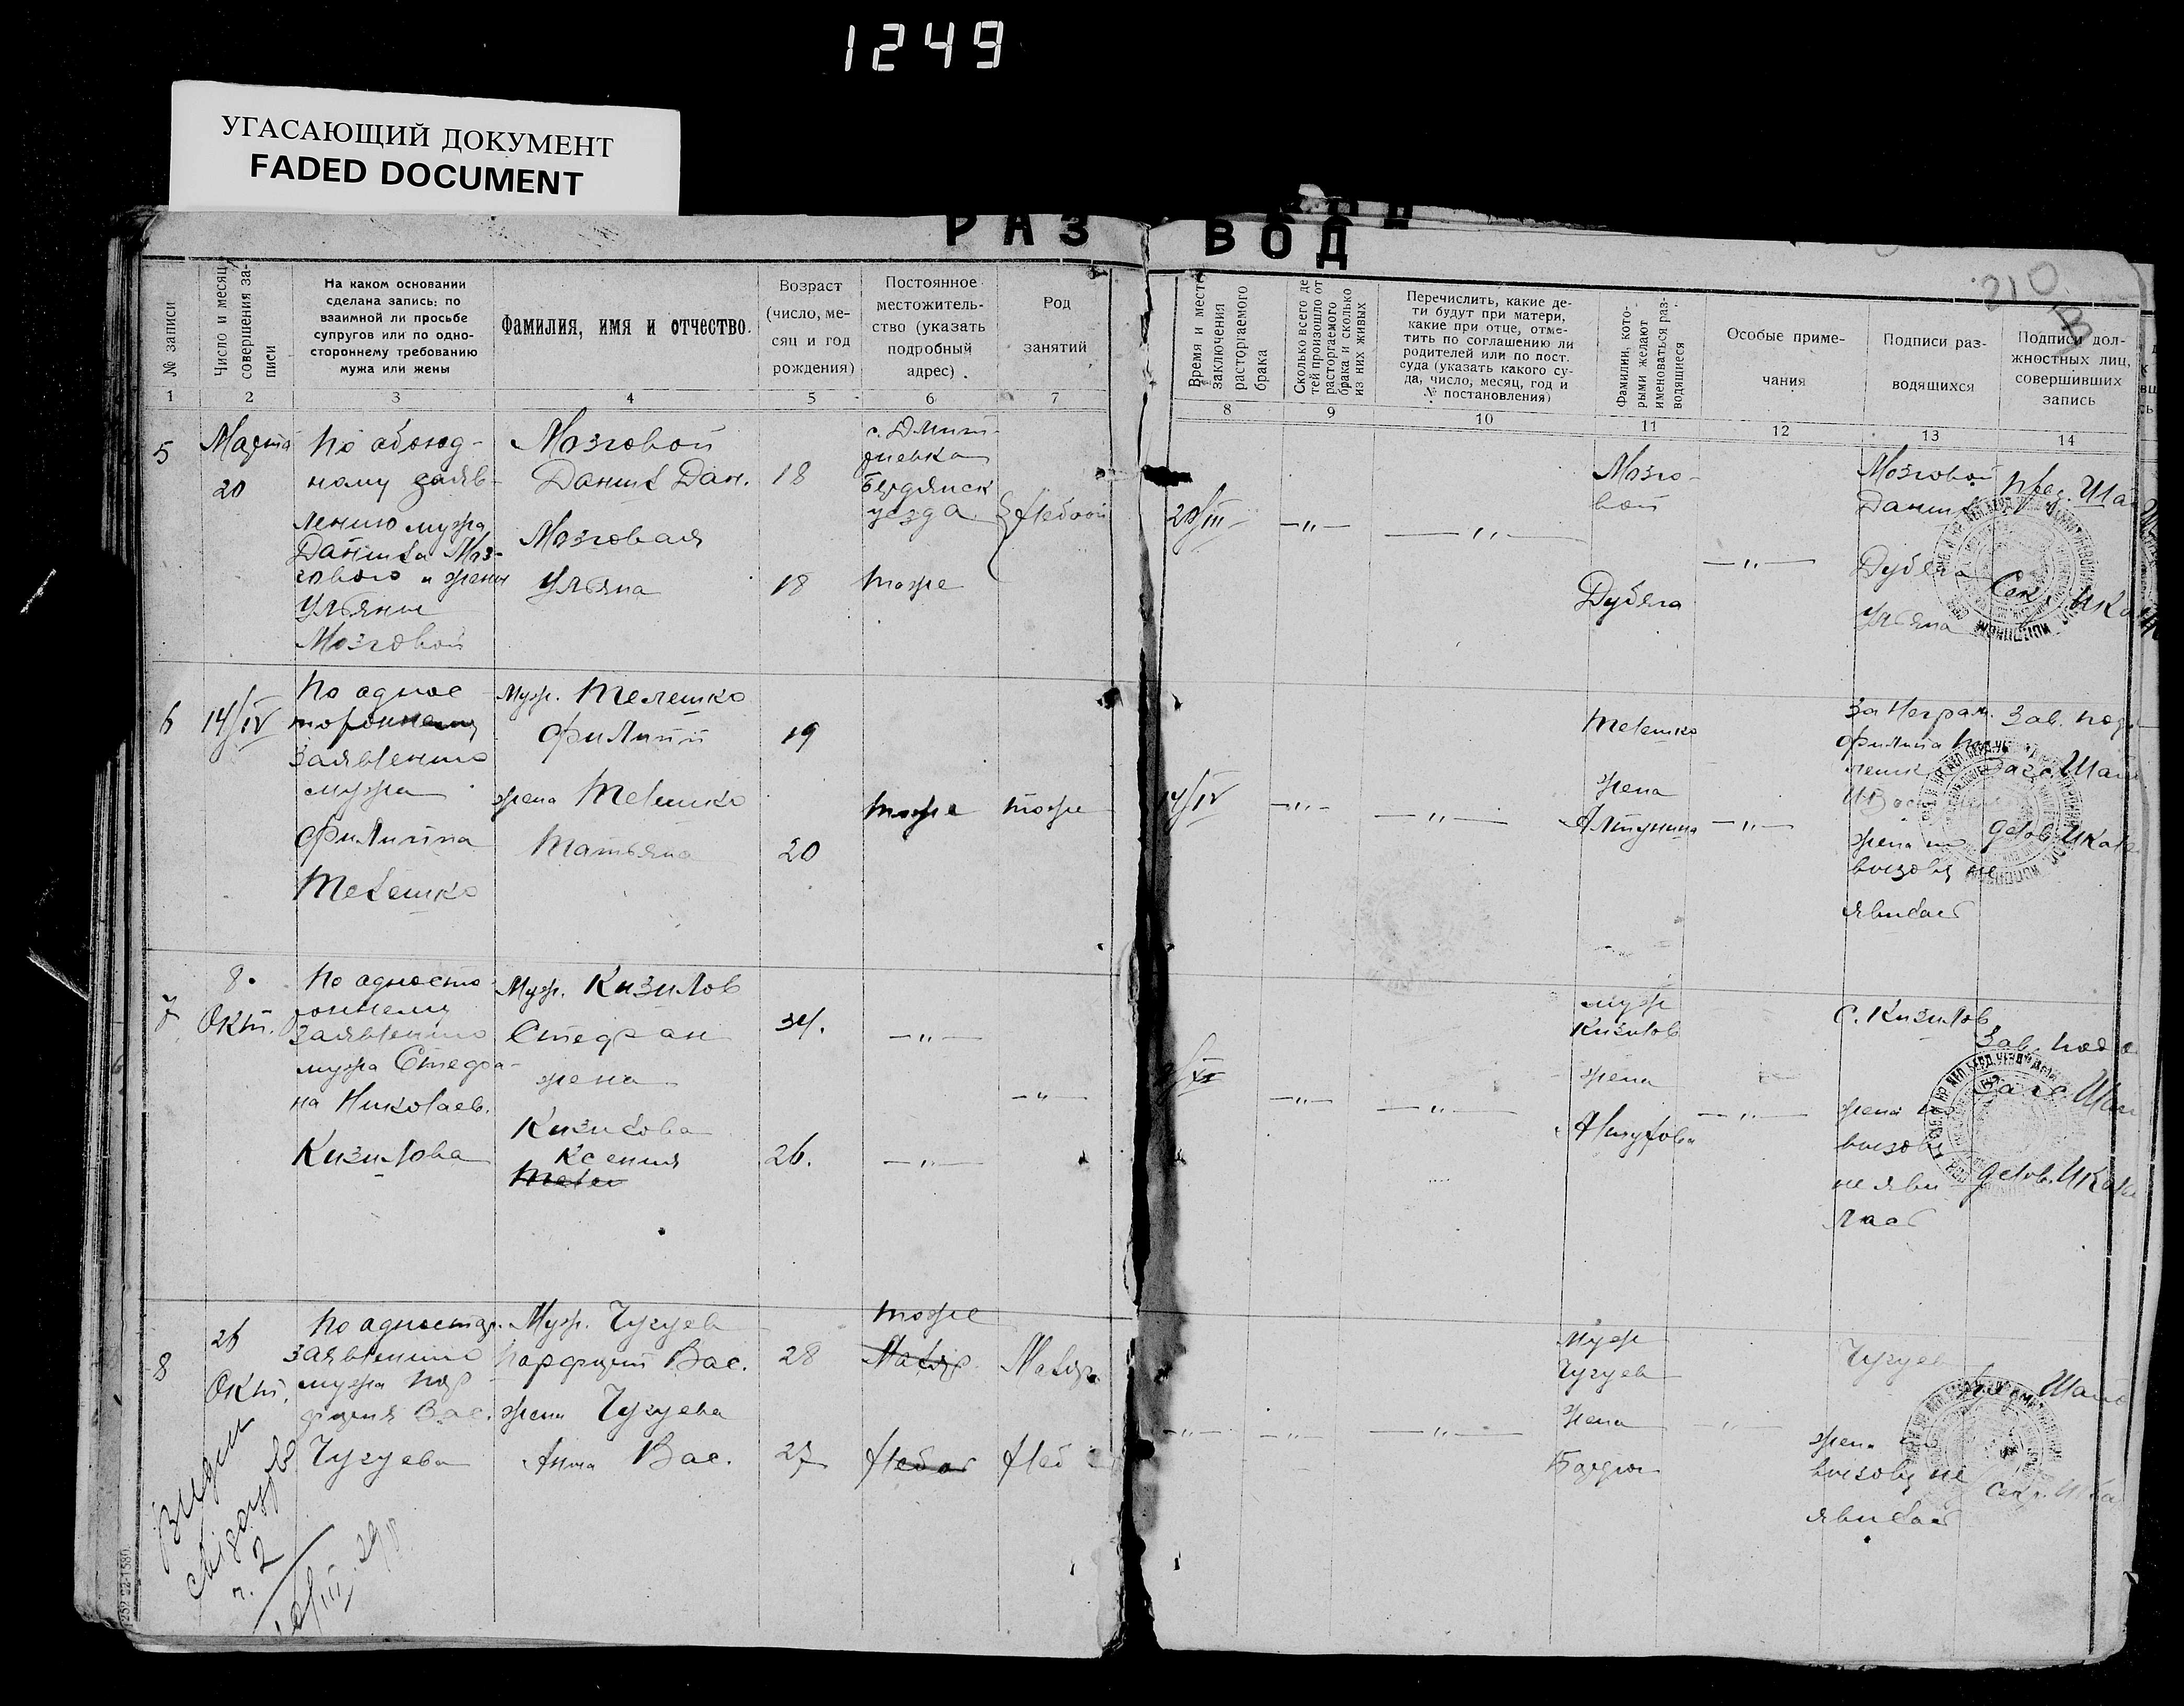 1249
УГАСАЮЩИЙ ДОКУМЕНТ
FADED DOCUMENT
РАЗВОД
№ записи
Число и месяц совершения записи
На каком основании
сделана запись: по
взаимной ли просьбе
супругов или по одно-
стороннему требованию
мужа или жены
Фамилия, имя и отчество.
Возраст
(число, ме-
сяц и год
рождения)
Постоянное
местожитель-
ство (указать
подробный
адрес)
Род
занятий
Время и место
заключения
расторгаемого
брака
Сколько всего де
тей произошло от
расторгаемого
брака и сколько
из них живых
Перечислить, какие де-
ти будут при матери,
какие при отце, отме-
тить по соглашению ли
родителей или по пост.
суда (указать какого су-
да, число, месяц, год и
№ постановления)
Фамилии, кото-
рыми желают
именоваться раз-
водящиеся
Особые приме-
чания
Подписи раз-
водящихся
Подписи дол-
жностных лиц,
совершивших
запись
210
1 2 3 4 5 6 7 8 9 10 11 12 13 14
5
Марта
20
По обоюд-
ному заяв-
лению мужа
Данила Моз-
гового и жены
Ульяны
Мозговой
Мозговой
Данил Дан.
Мозговая
Ульяна
18
18
с. Дмит-
риевка
Бердянск
уезда
тоже
Хлебоп
20/III
—"—
—"—
Мозго-
вой
Дубяга
—"—
Мозговой
Данил
Дубяга
Ульяна
Пред. Ша
Сек.
6
14/IV
По однос
тороннему
заявлению
мужа
Филиппа
Телешко
Муж. Телешко
Филипп
жена Телешко
Татьяна
19
20
тоже
тоже
14/IV
—"—
—"—
Телешко
жена
Алтунина
—"—
За неграм.
Филипа Те
лешк
жена по
вызову не
явилась
Зав. под
Загс. Шап
делов.
7
8.
Окт.
По односто
роннему
заявлению
мужа Стефа-
на Николаев.
Кизилова
Муж. Кизилов
Стефан
жена
Кизилова
Ксения
34.
26.
—"—
—"—
—"—
—"—
—"—
муж
Кизилов
жена
—"—
С. Кизилов
жена по
вызову
не яви
лась
Зав. под
Загс. Шап
делов.
8
26
Окт.
По одностор.
заявлению
мужа Пор
фирия Вас.
Чугуева
Муж. Чугуев
Порфирий Вас.
жена Чугуева
Анна Вас.
28
27
тоже
Маляр.
Маляр.
Хлеб
—"—
—"—
—"—
муж
Чугуев
жена
—"—
Чугуев
жена по
вызову не
явилась
Пред. Шап
Секр.
Выдан
г. 2